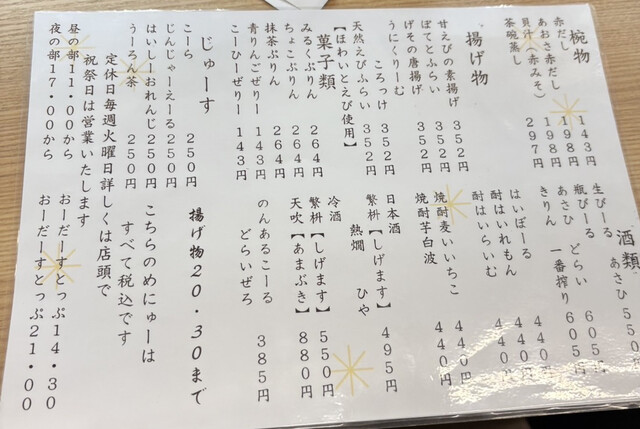 椀物
赤だし 143円
あおさ赤だし 198円
貝汁(赤みそ) 198円
茶碗蒸し 297円
揚げ物
甘えびの素揚げ 352円
ぽてとふらい 352円
げその唐揚げ 352円
うにくりーむ
ころっけ 352円
天然えびふらい 352円
【ほわいとえび使用】
菓子類
みるくぷりん 264円
ちょこぷりん 264円
抹茶ぷりん 264円
青りんごぜりー 143円
こーひーぜりー 143円
じゅーす
こーら 250円
じんじゃーえーる 250円
はいしーおれんじ 250円
うーろん茶 250円
酒類
生びーる あさひ 550
瓶びーる 605
あさひ どらい
きりん 一番搾り 605円
はいぼーる 440円
酎はいれもん 440円
酎はいらいむ 440円
焼酎麦いいちこ 440円
焼酎芋白波 440円
日本酒
繁桝【しげます】 495円
熱燗 ひや
冷酒
繁桝【しげます】 550円
天吹【あまぶき】 880円
のんあるこーる
どらいぜろ 385円
揚げ物20・30まで
こちらのめにゅーは
すべて税込です
定休日毎週火曜日詳しくは店頭で
祝祭日は営業いたします
昼の部11・00から おーだーすとっぷ14・30
夜の部17・00から おーだーすとっぷ21・00